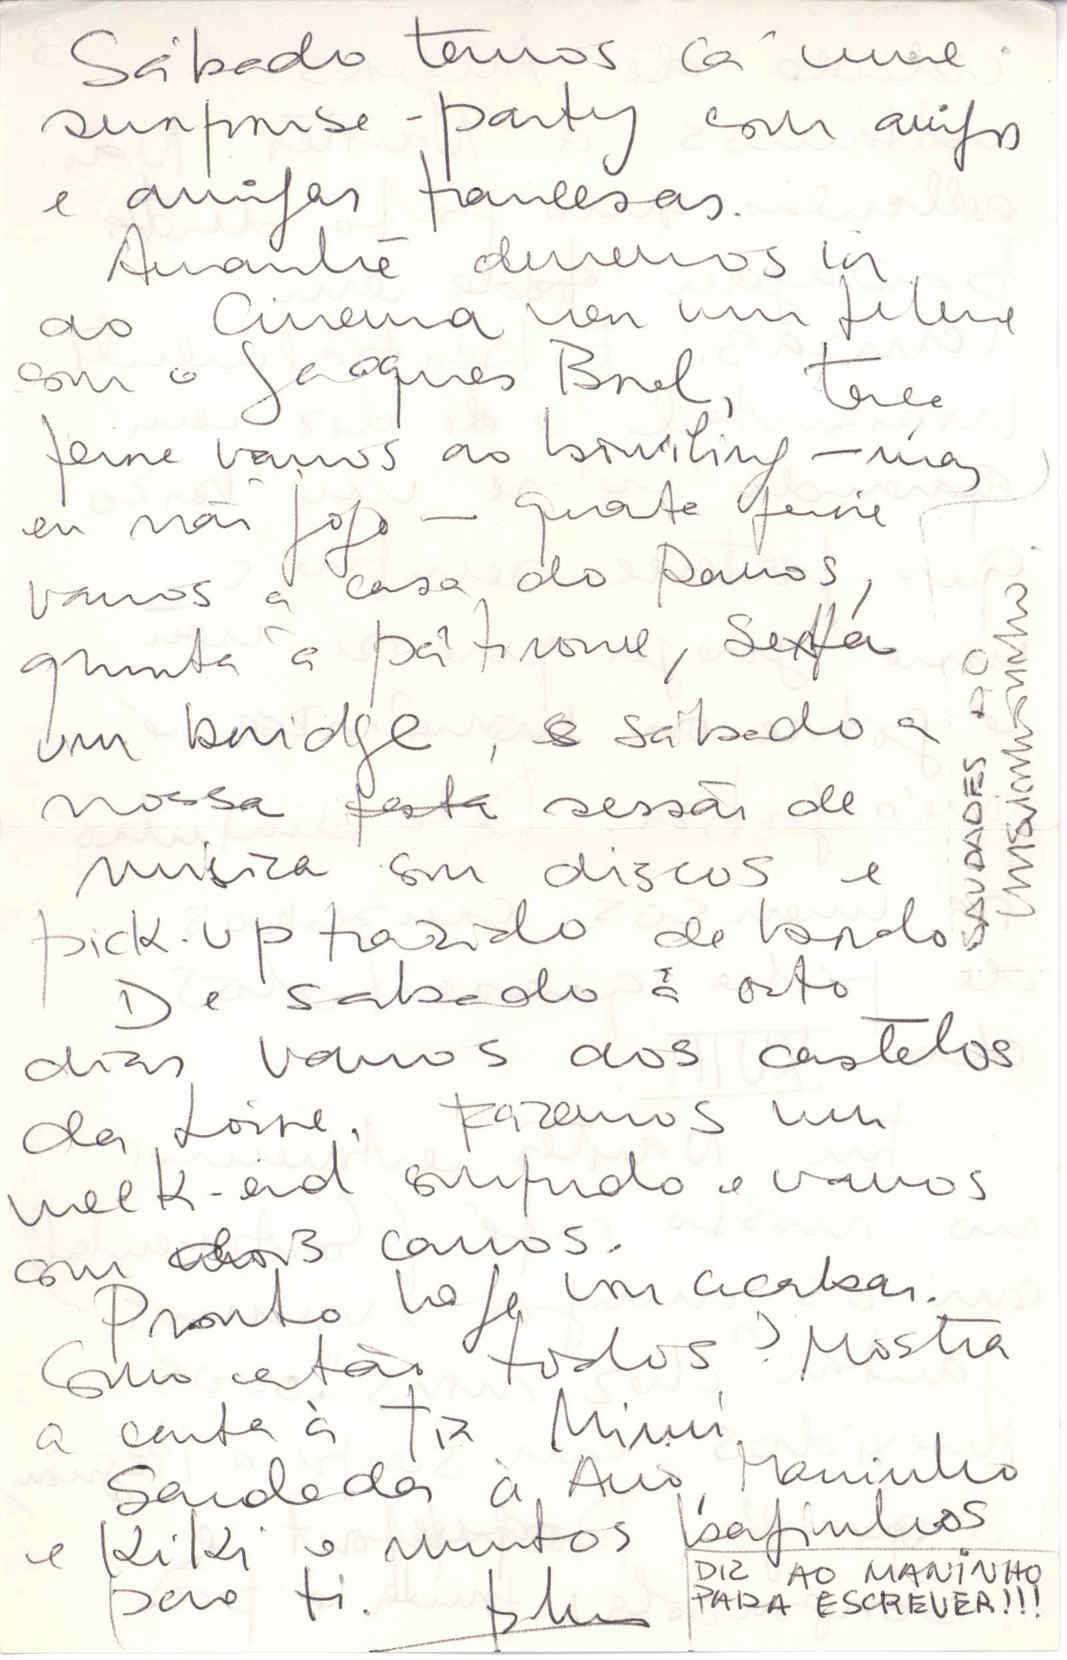 Sábado temos cá uma
surprise-party com amigos
e amigas francesas.
Amanhã devemos ir
ao Cinema ver um filme
com o Jacques Brel, terça
feira vamos ao bowling - mas
eu não jogo - quarta feira
vamos a casa do Ramos,
quinta à patinoire, Sexta
um bridge, e sábado a
nossa festa sessão de
música com discos e
pick-up trazido de bordo
De sabado a oito
dias vamos aos castelos
da Loire. Fazemos um
week-end comprido e vamos
com 3 carros.
Pronto hoje vou acabar.
Como estão todos? Mostra
a carta à Tia Mimi.
Saudades à Avó, Maninho
e Kiki e muitos beijinhos
para ti.
DIZ AO MANINHO
PARA ESCREVER!!!
SAUDADES AO